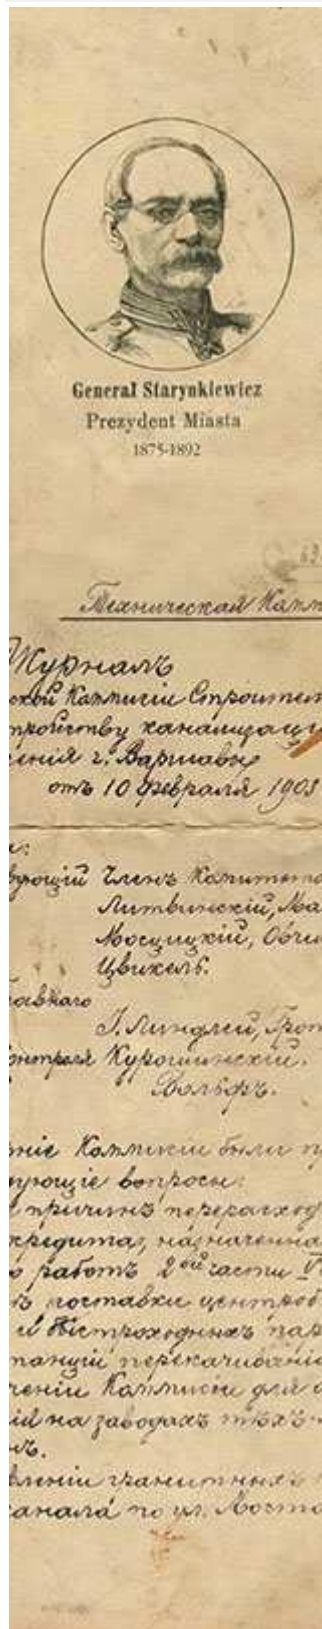 General Starynkiewicz
Prezydent Miasta
1875-1892
63
Техническая Комм
Журналъ
ской Коммисіи Строител
тройству канализаці
женія г. Варшавы
отъ 10 Февраля 1903
е:
вующій Членъ Комитета
Литвинскій, Ма
Мосцицкій, Обче
Цвикель.
главнаго
Линдлей, Гро
онтроля Курошинскій.
Вольфъ.
ніе Коммисіи были п
дующіе вопросы:
причинъ перерасход
кредита, назначенна
работъ 2ой части V
поставки центроб
и быстроходныхъ па
танціи перекачиванія
ченіи Коммисіи для о
на заводахъ тѣхъ
нъ.
вленіи гранитныхъ
канала по ул.